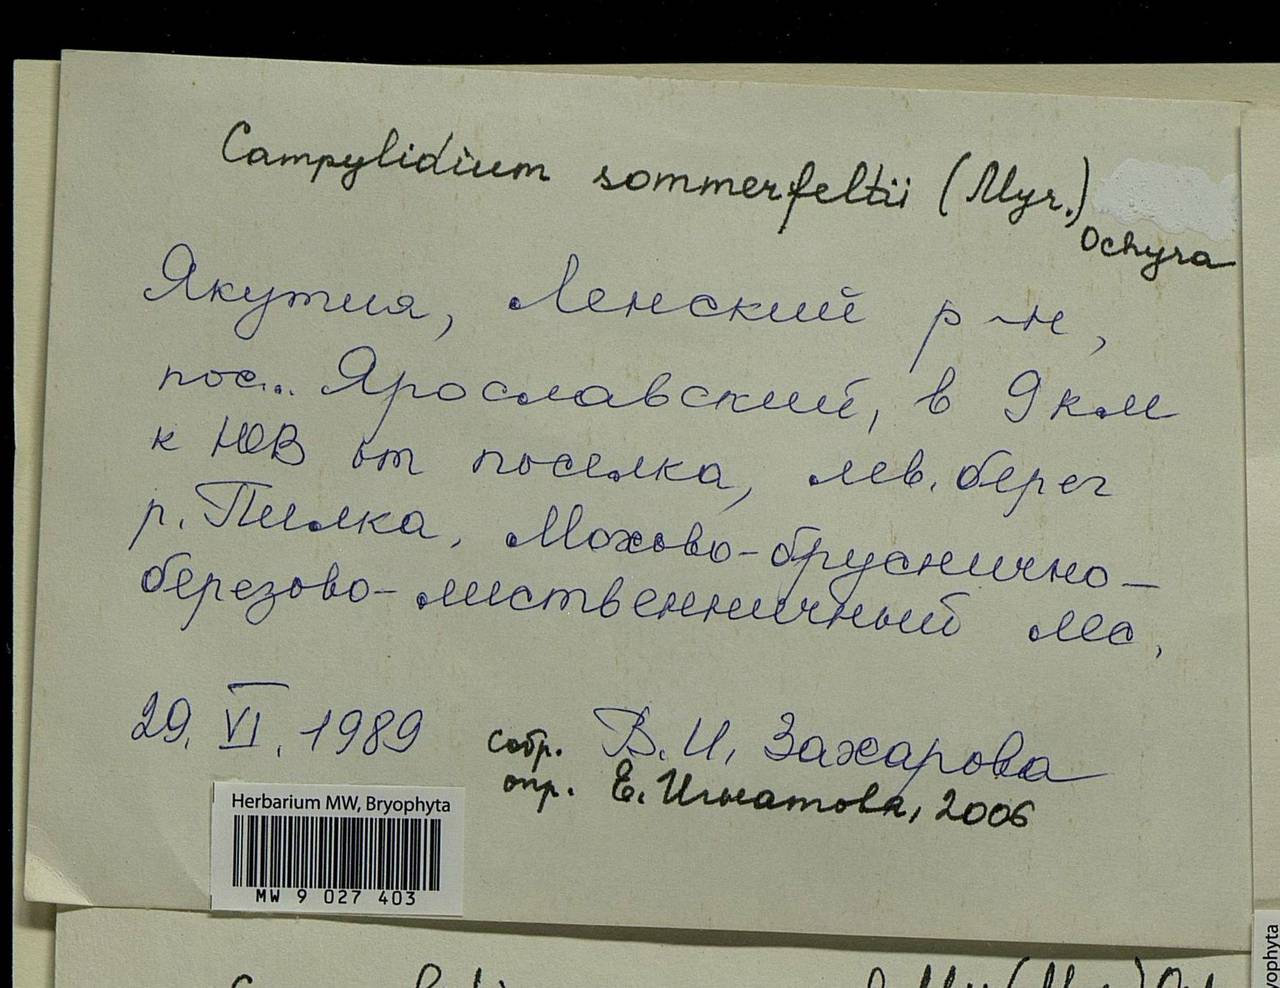 Campylidium sommerfeltii (Myr.)
Ochyra
Якутия, Ленский р-н,
пос. Ярославский, в 9 км
к ЮВ от поселка, лев. берег
р. Пилка, Мохово-бруснично-
березово-лиственничный лес,
29. VI. 1989 собр. В. И. Захарова
опр. Е. Игнатова, 2006
Herbarium MW, Bryophyta
MW 9 027 403
yophyta